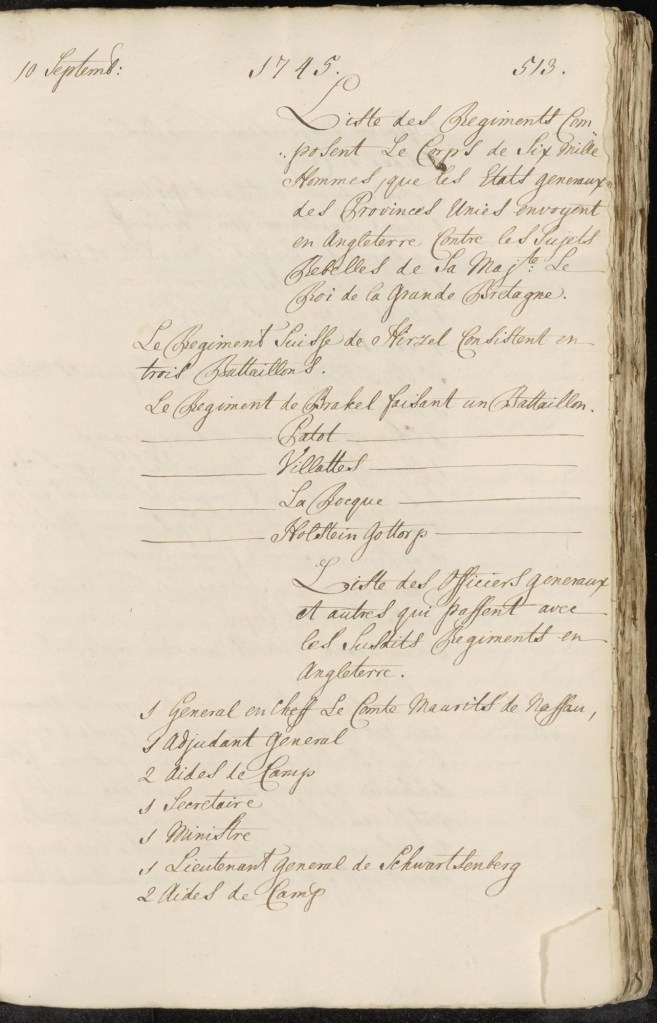 10 Septemb: 1745. 513.
Liste des Regiments Com
posent Le Corps de Six Mille
Hommes, que les Etats generaux
des Provinces Unies envoyent
en Angleterre Contre les Sujets
Rebelles de Sa Majte: Le
Roi de la Grande Bretagne.
Le Regiment Suisse de Hirzel Consistent en
trois Battaillons.
Le Regiment de Brakel faisant un Battaillon.
Patot
Villattes
La Rocque
Holstein Gottorp
Liste des Officiers generaux
et autres qui passent avec
les Susdits Regiments en
Angleterre.
1 General en Cheff Le Comte Maurits de Nassau,
1 Adjudant General
2 Aides de Camp
1 Secretaire
1 Ministre
1 Lieutenant General de Schwartsenberg
2 Aides de Camp